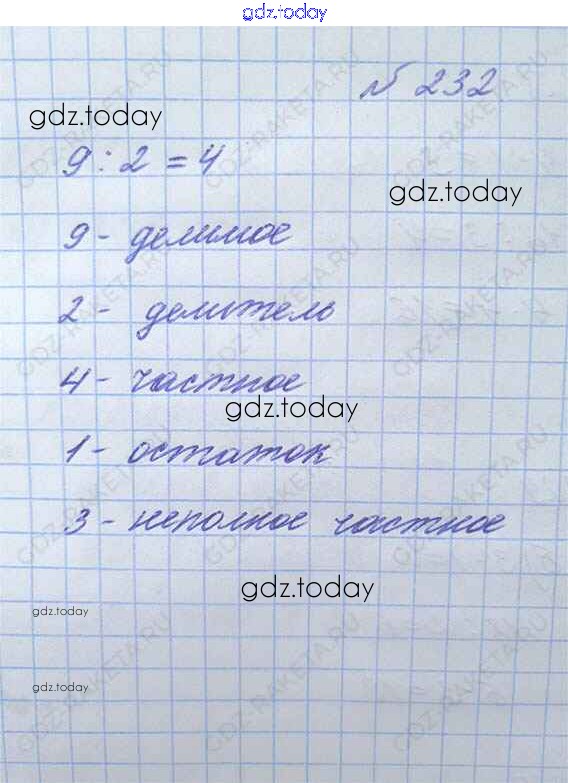 gdz.today
№ 232
gdz.today
9 : 2 = 4
gdz.today
9 - делимое
2 - делитель
4 - частное
gdz.today
1 - остаток
3 - неполное частное
gdz.today
gdz.today
gdz.today
GDZ-RAKETA.RU